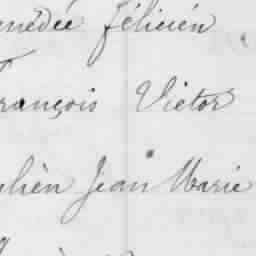 énédée félicién
rançois Victor
ulièn Jean Marie